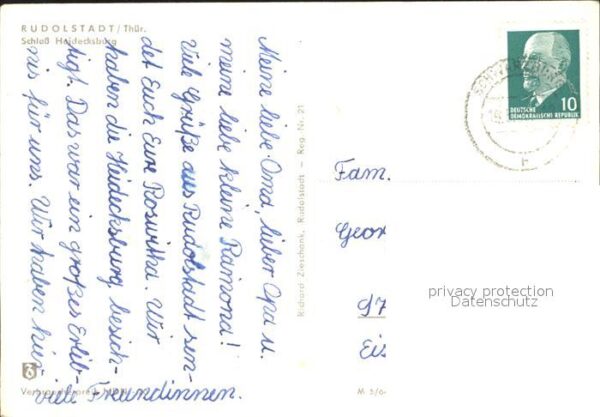 RUDOLSTADT/Thür.
Schloß Heidecksburg
Meine liebe Oma, lieber Opa u.
meine liebe kleine Raimona!
Viele Grüße aus Rudolstadt sen-
det Euch Eure Roswitha. Wir
haben die Heidecksburg besich-
tigt. Das war ein großes Erleb-
nis für uns. Wir haben hier
viele Freundinnen.
Richard Zieschank, Rudolstadt – Reg. Nr. 21
DEUTSCHE
DEMOKRATISCHE REPUBLIK
10
Fam.
Geor
97
Eis
privacy protection
Datenschutz
M 5/6